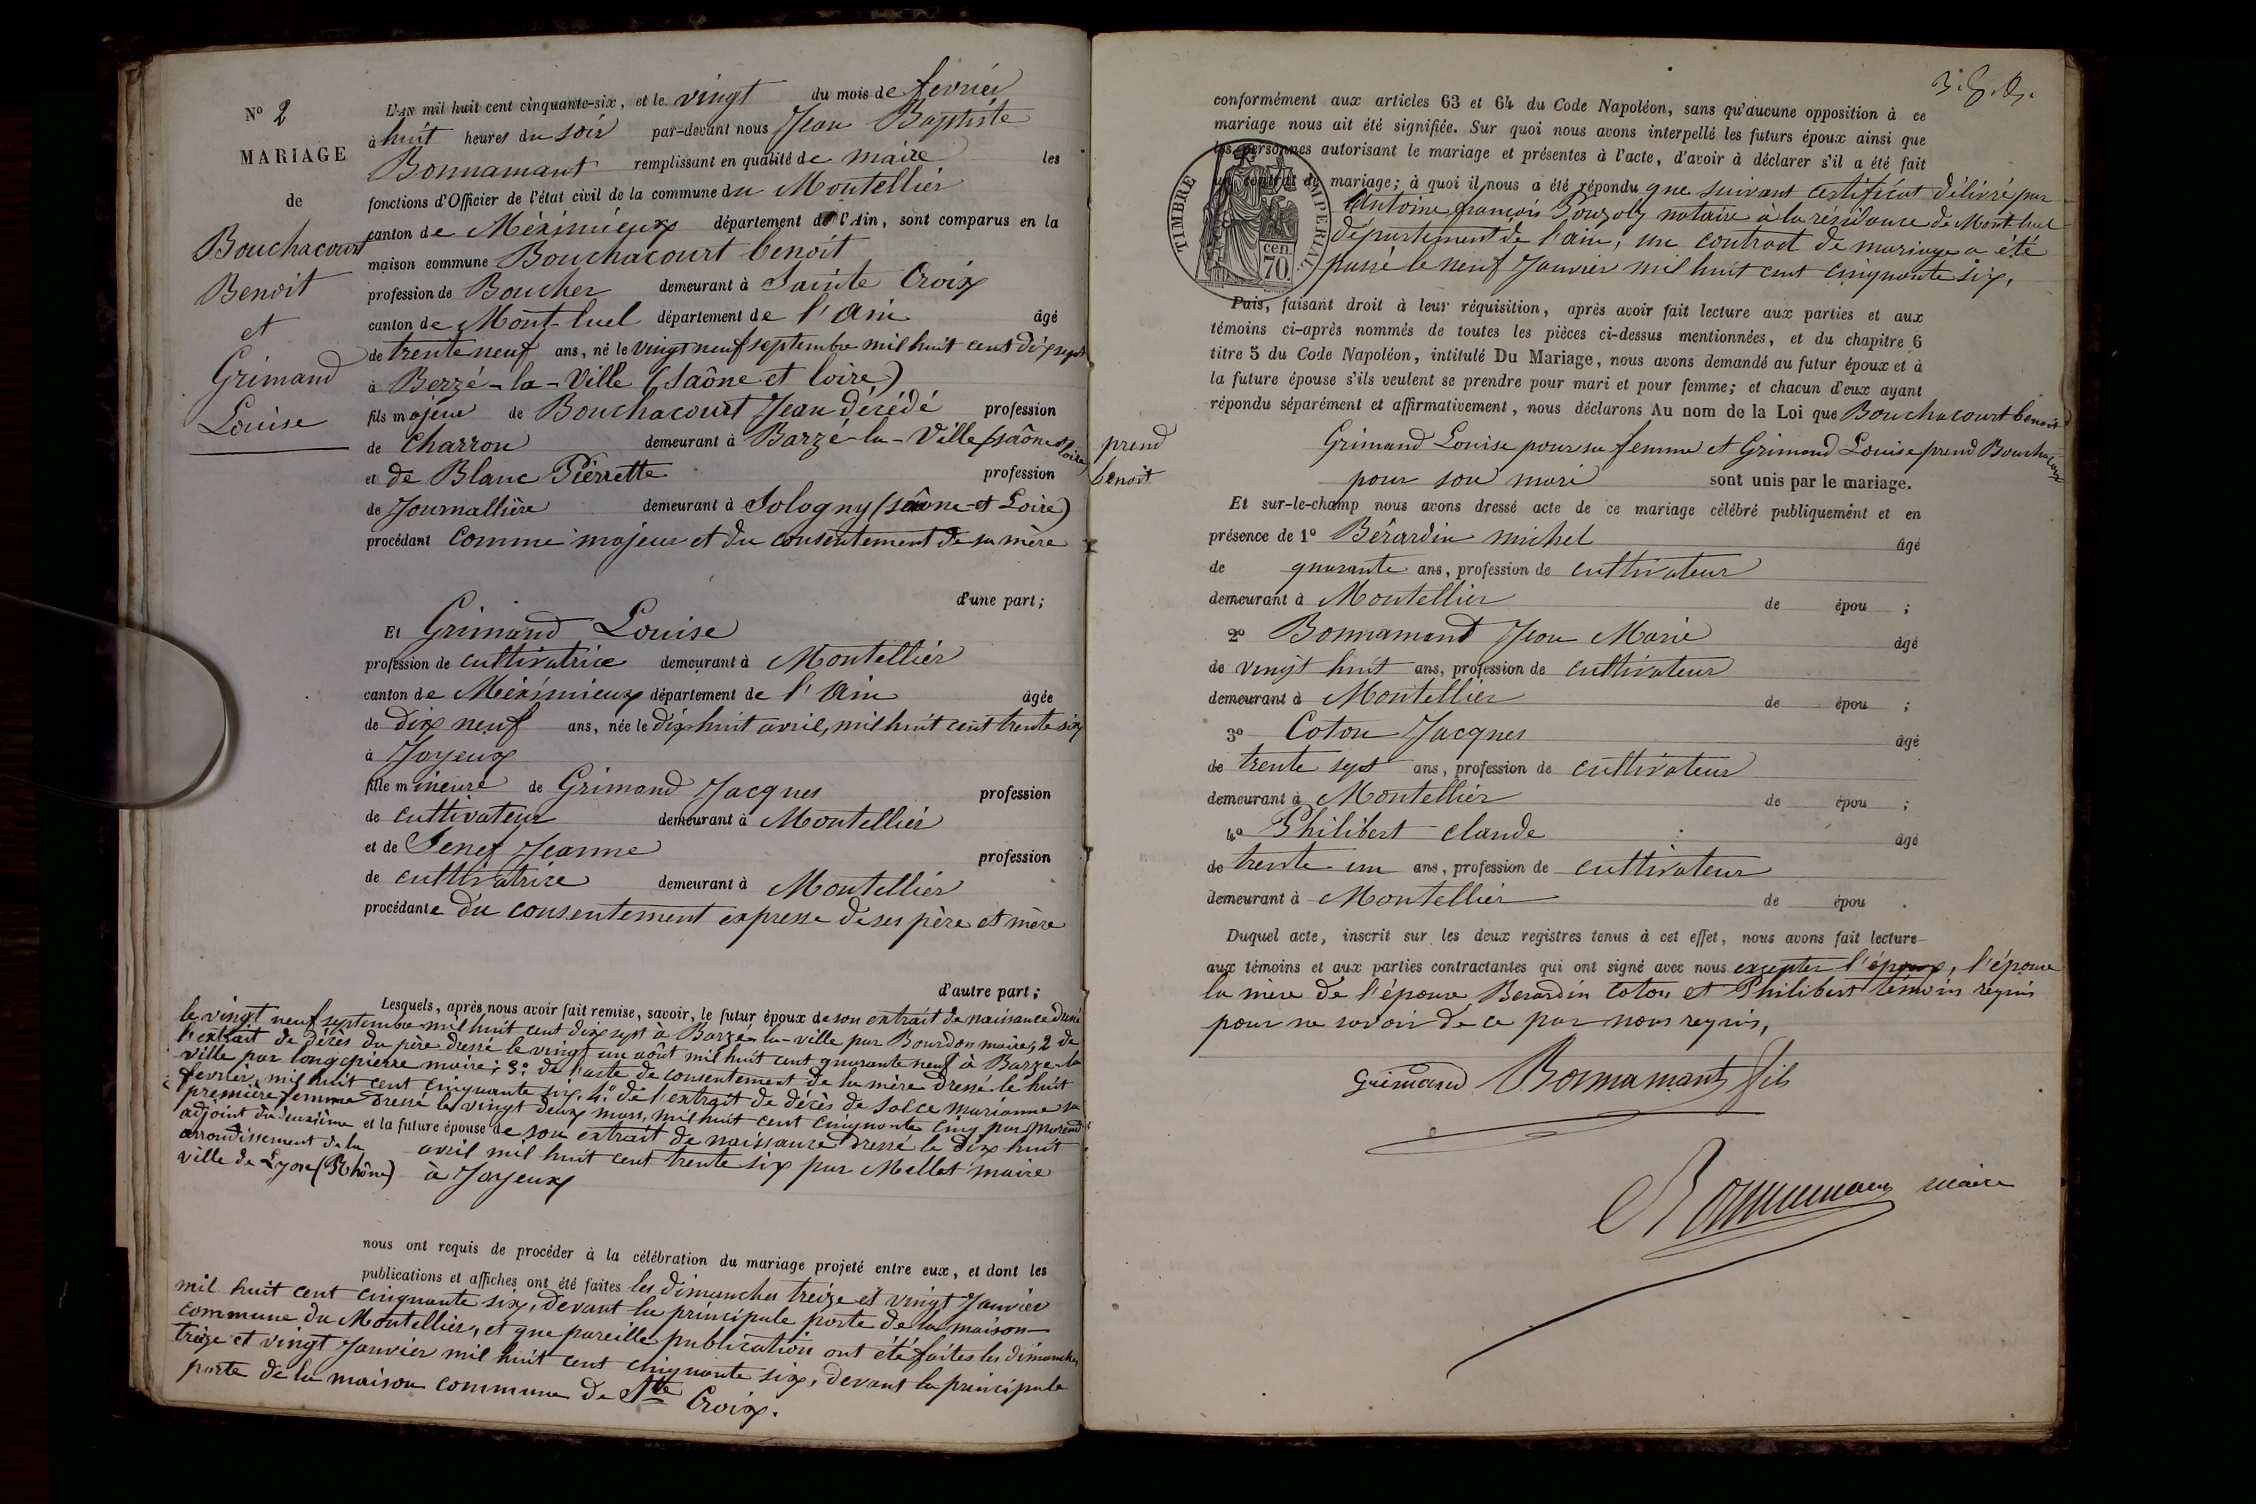 N° 2
MARIAGE
de
Bouchacourt
Benoit
et
Grimand
Louise
L'AN mil huit cent cinquante-six, et le vingt du mois de fevrier
à huit heures du soir par-devant nous Jean Baptiste
Bonnamant remplissant en qualité de maire les
fonctions d'Officier de l'état civil de la commune du Montellier
canton de Méximieux département de l'Ain, sont comparus en la
maison commune Bouchacourt benoit
profession de Boucher demeurant à Sainte Croix
canton de Mont-luel département de l'Ain âgé
de trente neuf ans, né le vingt neuf septembre mil huit cent dix sept
à Berzé-la-Ville (Saône et loire)
fils majeur de Bouchacourt Jean décédé profession
de charron demeurant à Barzé-la-Ville (saône et loire)
et de Blanc Pierrette profession
de Journallière demeurant à Sologny (saône et Loire)
procédant comme majeur et du consentement de sa mère
d'une part;
Et Grimand Louise
profession de cultivatrice demeurant à Montellier
canton de Méximieux département de l'Ain âgée
de dix neuf ans, née le dix huit avril, mil huit cent trente six
à Joyeux
fille mineure de Grimand Jacques profession
de cultivateur demeurant à Montellier
et de Senef Jeanne profession
de cultivatrice demeurant à Montellier
procédante du consentement expresse de ses père et mère
d'autre part;
Lesquels, après nous avoir fait remise, savoir, le futur époux de son extrait de naissance dressé
le vingt neuf septembre mil huit cent dix sept à Barzé-la-ville par Bourdon maire, 2 de
l'extrait de décès du père dressé le vingt un août mil huit cent quarante neuf à Barze-la
ville par longepierre maire, 3° de l'acte de consentement de la mère dressé le huit
fevrier mil huit cent cinquante six, 4° de l'extrait de décès de Solce marianne sa
première femme dressé le vingt deux mars, mil huit cent cinquante cinq par Morand
adjoint du deuxième et la future épouse de son extrait de naissance dressé le dix huit
arrondissement de la avril mil huit cent trente six par Mellet maire
ville de Lyon (Rhône) à Joyeux
nous ont requis de procéder à la célébration du mariage projeté entre eux, et dont les
publications et affiches ont été faites les dimanches treize et vingt Janvier
mil huit cent cinquante six, devant la principale porte de la maison
commune du Montellier, et que pareille publication ont été faites les dimanches
treize et vingt Janvier mil huit cent cinquante six, devant la principale
porte de la maison commune de Ste Croix.
conformément aux articles 63 et 64 du Code Napoléon, sans qu'aucune opposition à ce
mariage nous ait été signifiée. Sur quoi nous avons interpellé les futurs époux ainsi que
les personnes autorisant le mariage et présentes à l'acte, d'avoir à déclarer s'il a été fait
un contrat de mariage; à quoi il nous a été répondu que suivant certificat délivré par
Antoine françois Pouzoly notaire à la résidance de Mont-luel
département de l'ain, un contract de mariage a été
passé le neuf Janvier mil huit cent cinquante six,
TIMBRE IMPERIAL
cen
70
Puis, faisant droit à leur réquisition, après avoir fait lecture aux parties et aux
témoins ci-après nommés de toutes les pièces ci-dessus mentionnées, et du chapitre 6
titre 5 du Code Napoléon, intitulé Du Mariage, nous avons demandé au futur époux et à
la future épouse s'ils veulent se prendre pour mari et pour femme; et chacun d'eux ayant
répondu séparément et affirmativement, nous déclarons Au nom de la Loi que Bouchacourt benoit
prend Grimand Louise pour sa femme et Grimand Louise prend Bouchacourt
benoit pour son mari sont unis par le mariage.
Et sur-le-champ nous avons dressé acte de ce mariage célébré publiquement et en
présence de 1° Bérardin michel âgé
de quarante ans, profession de cultivateur
demeurant à Montellier de épou ;
2° Bonnamand Jean Marie âgé
de vingt huit ans, profession de cultivateur
demeurant à Montellier de épou ;
3° Coton Jacques âgé
de trente sept ans, profession de cultivateur
demeurant à Montellier de épou ;
4° Philibert claude âgé
de trente un ans, profession de cultivateur
demeurant à Montellier de épou .
Duquel acte, inscrit sur les deux registres tenus à cet effet, nous avons fait lecture
aux témoins et aux parties contractantes qui ont signé avec nous excepter l'époux, l'épouse
la mère de l'épouse Berardin Coton et Philibert témoins requis
pour ne savoir de ce par nous requis,
Grimand Bonnamant fils
Bonnamant maire